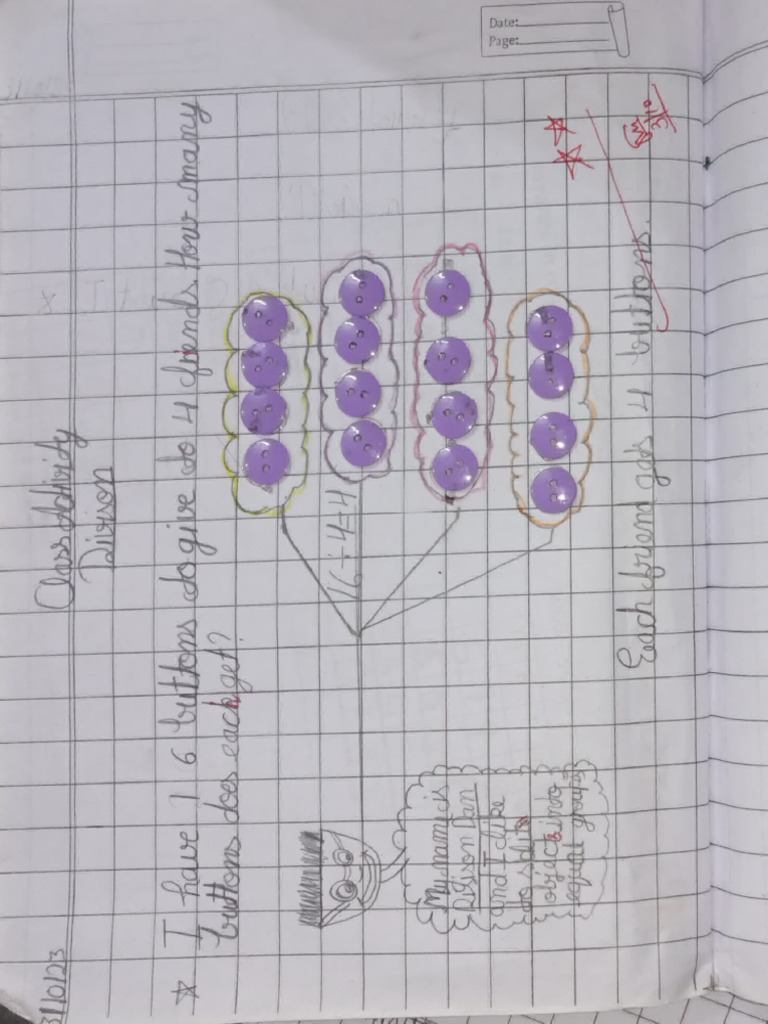 Date:
Page:
3/10/23
Class Activity
Divison
I have 16 buttons to give to 4 friends. How many
buttons does each get?
16÷4=4
My name is
Divison Dan
and I like
to split
objects into
equal groups
Each friend gets 4 buttons.
3/10